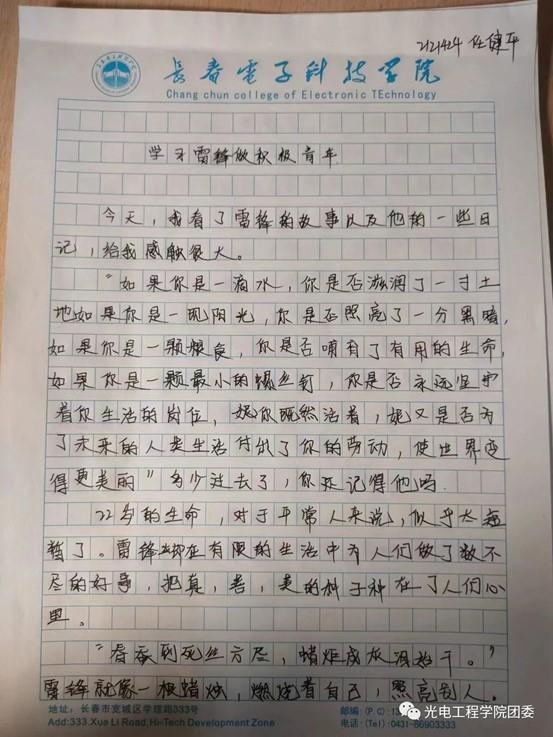 2121424 任健平
长春电子科技学院
Chang chun college of Electronic TEchnology
学习雷锋做积极青年
今天,我看了雷锋的故事以及他的一些日
记,给我感触很大。
"如果你是一滴水,你是否滋润了一寸土
地如果你是一晛阳光,你是否照亮了一分黑暗,
如果你是一颗粮食,你是否哺育了有用的生命,
如果你是一颗最小的螺丝钉,你是否永远坚守
着你生活的岗位,妮你既然活着,妮又是否为
了未来的人类生活付出了你的劳动,使世界变
得更美丽"多少过去了,你还记得他吗
22岁的生命,对于平常人来说,似乎太短
暂了。雷锋却在有限的生活中为人们做了数不
尽的好事,把真,善,美的种子种在了人们心
里。
"春蚕到死丝方尽,蜡炬成灰泪始干。"
雷锋就像一根蜡烛,燃烧着自己,照亮别人。
地址:长春市宽城区学理路333号
Add:333.Xue Li Road,Hi-Tech Development Zone
邮编:(P.C):13
电话:(Tel)0431-86903333
光电工程学院团委